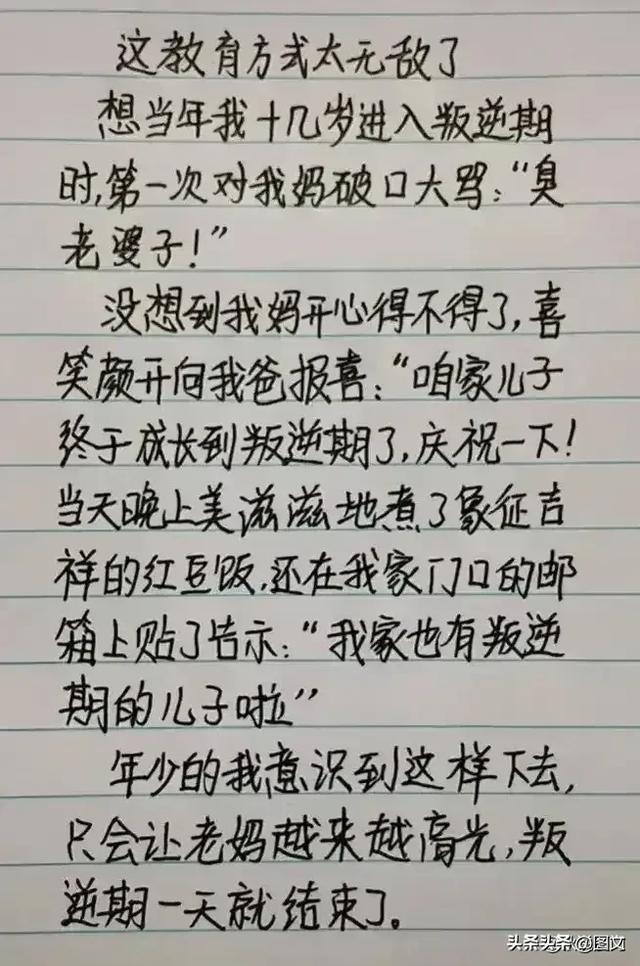 这教育方式太无敌了
想当年我十几岁进入叛逆期
时,第一次对我妈破口大骂:“臭
老婆子!”
没想到我妈开心得不得了,喜
笑颜开向我爸报喜:“咱家儿子
终于成长到叛逆期了,庆祝一下!
当天晚上美滋滋地煮了象征吉
祥的红豆饭,还在我家门口的邮
箱上贴了告示:“我家也有叛逆
期的儿子啦”
年少的我意识到这样下去,
只会让老妈越来越高光,叛
逆期一天就结束了。
头条头条@图文